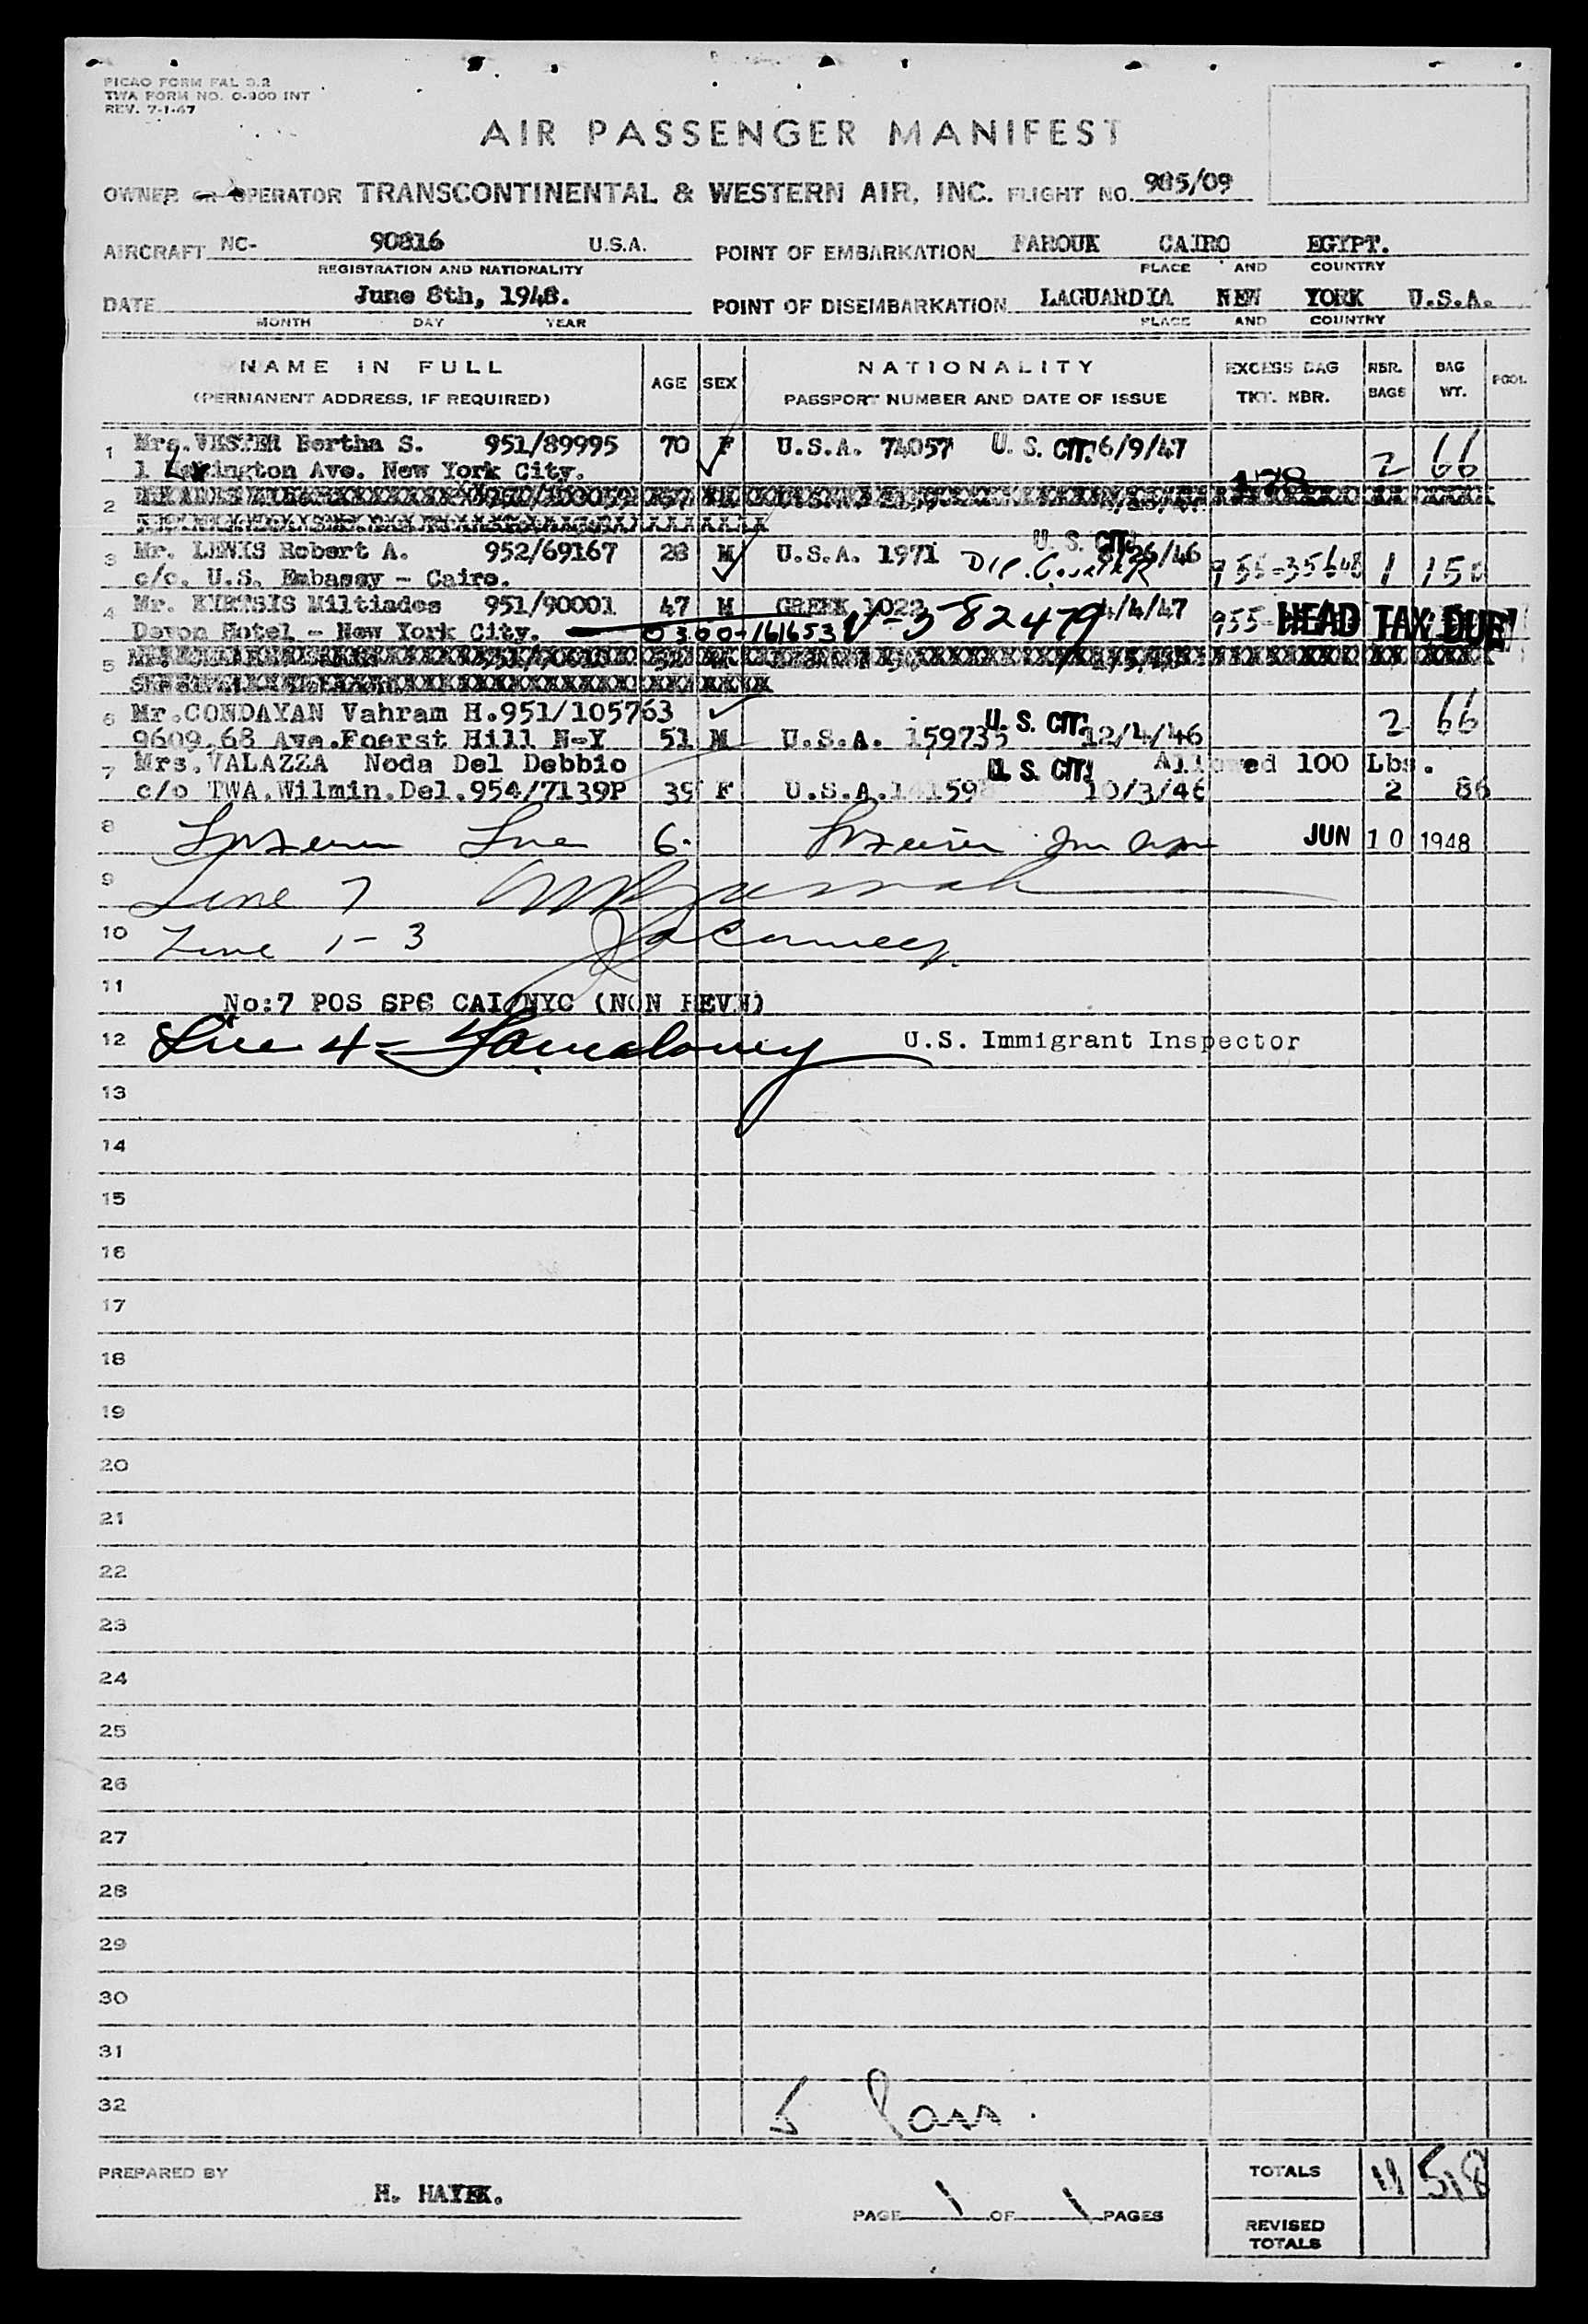 PICAO FORM FAL 3.2
TWA FORM NO. O-900 INT
REV. 7-1-47
AIR PASSENGER MANIFEST
OWNER OR OPERATOR TRANSCONTINENTAL & WESTERN AIR, INC. FLIGHT NO. 905/09
AIRCRAFT NC- 90816 U.S.A. POINT OF EMBARKATION FAROUK CAIRO EGYPT.
REGISTRATION AND NATIONALITY PLACE AND COUNTRY
DATE June 8th, 1948. POINT OF DISEMBARKATION LAGUARDIA NEW YORK U.S.A.
MONTH DAY YEAR PLACE AND COUNTRY
NAME IN FULL AGE SEX NATIONALITY EXCESS BAG NBR. BAG POOL
(PERMANENT ADDRESS, IF REQUIRED) PASSPORT NUMBER AND DATE OF ISSUE TKT. NBR. BAGS WT.
1 Mrs.VESTER Bertha S. 951/89995 70 F U.S.A. 74057 U. S. CIT. 6/9/47 2 66
1 Lexington Ave. New York City.
178
2
3 Mr. LEWIS Robert A. 952/69167 28 M U.S.A. 1971 U. S. CIT. /26/46 955-35648 1 150
c/o. U.S. Embassy - Cairo. Dip. Courier
4 Mr. Miltiades 951/90001 47 M GREEK 1022 4/4/47 955- HEAD TAX DUE
Devon Hotel - New York City. 0300-161653 V-382479
5
6 Mr.CONDAYAN Vahram H.951/105763
9609.68 Ave.Foerst Hill N-Y 51 M U.S.A. 159735 U. S. CIT. 12/4/46 2 66
7 Mrs.VALAZZA Noda Del Debbio U. S. CIT. Allowed 100 Lbs.
c/o TWA.Wilmin.Del.954/7139P 39 F U.S.A. 10/3/46 2 86
8 Line 6. JUN 10 1948
9 Line 7
10 Line 1-3
11 No:7 POS SPS CAI/NYC (NON REVN)
12 Line 4- U.S. Immigrant Inspector
13
14
15
16
17
18
19
20
21
22
23
24
25
26
27
28
29
30
31
32 5 Pass.
PREPARED BY H. HAYEK. PAGE 1 OF 1 PAGES TOTALS 11 518
REVISED
TOTALS